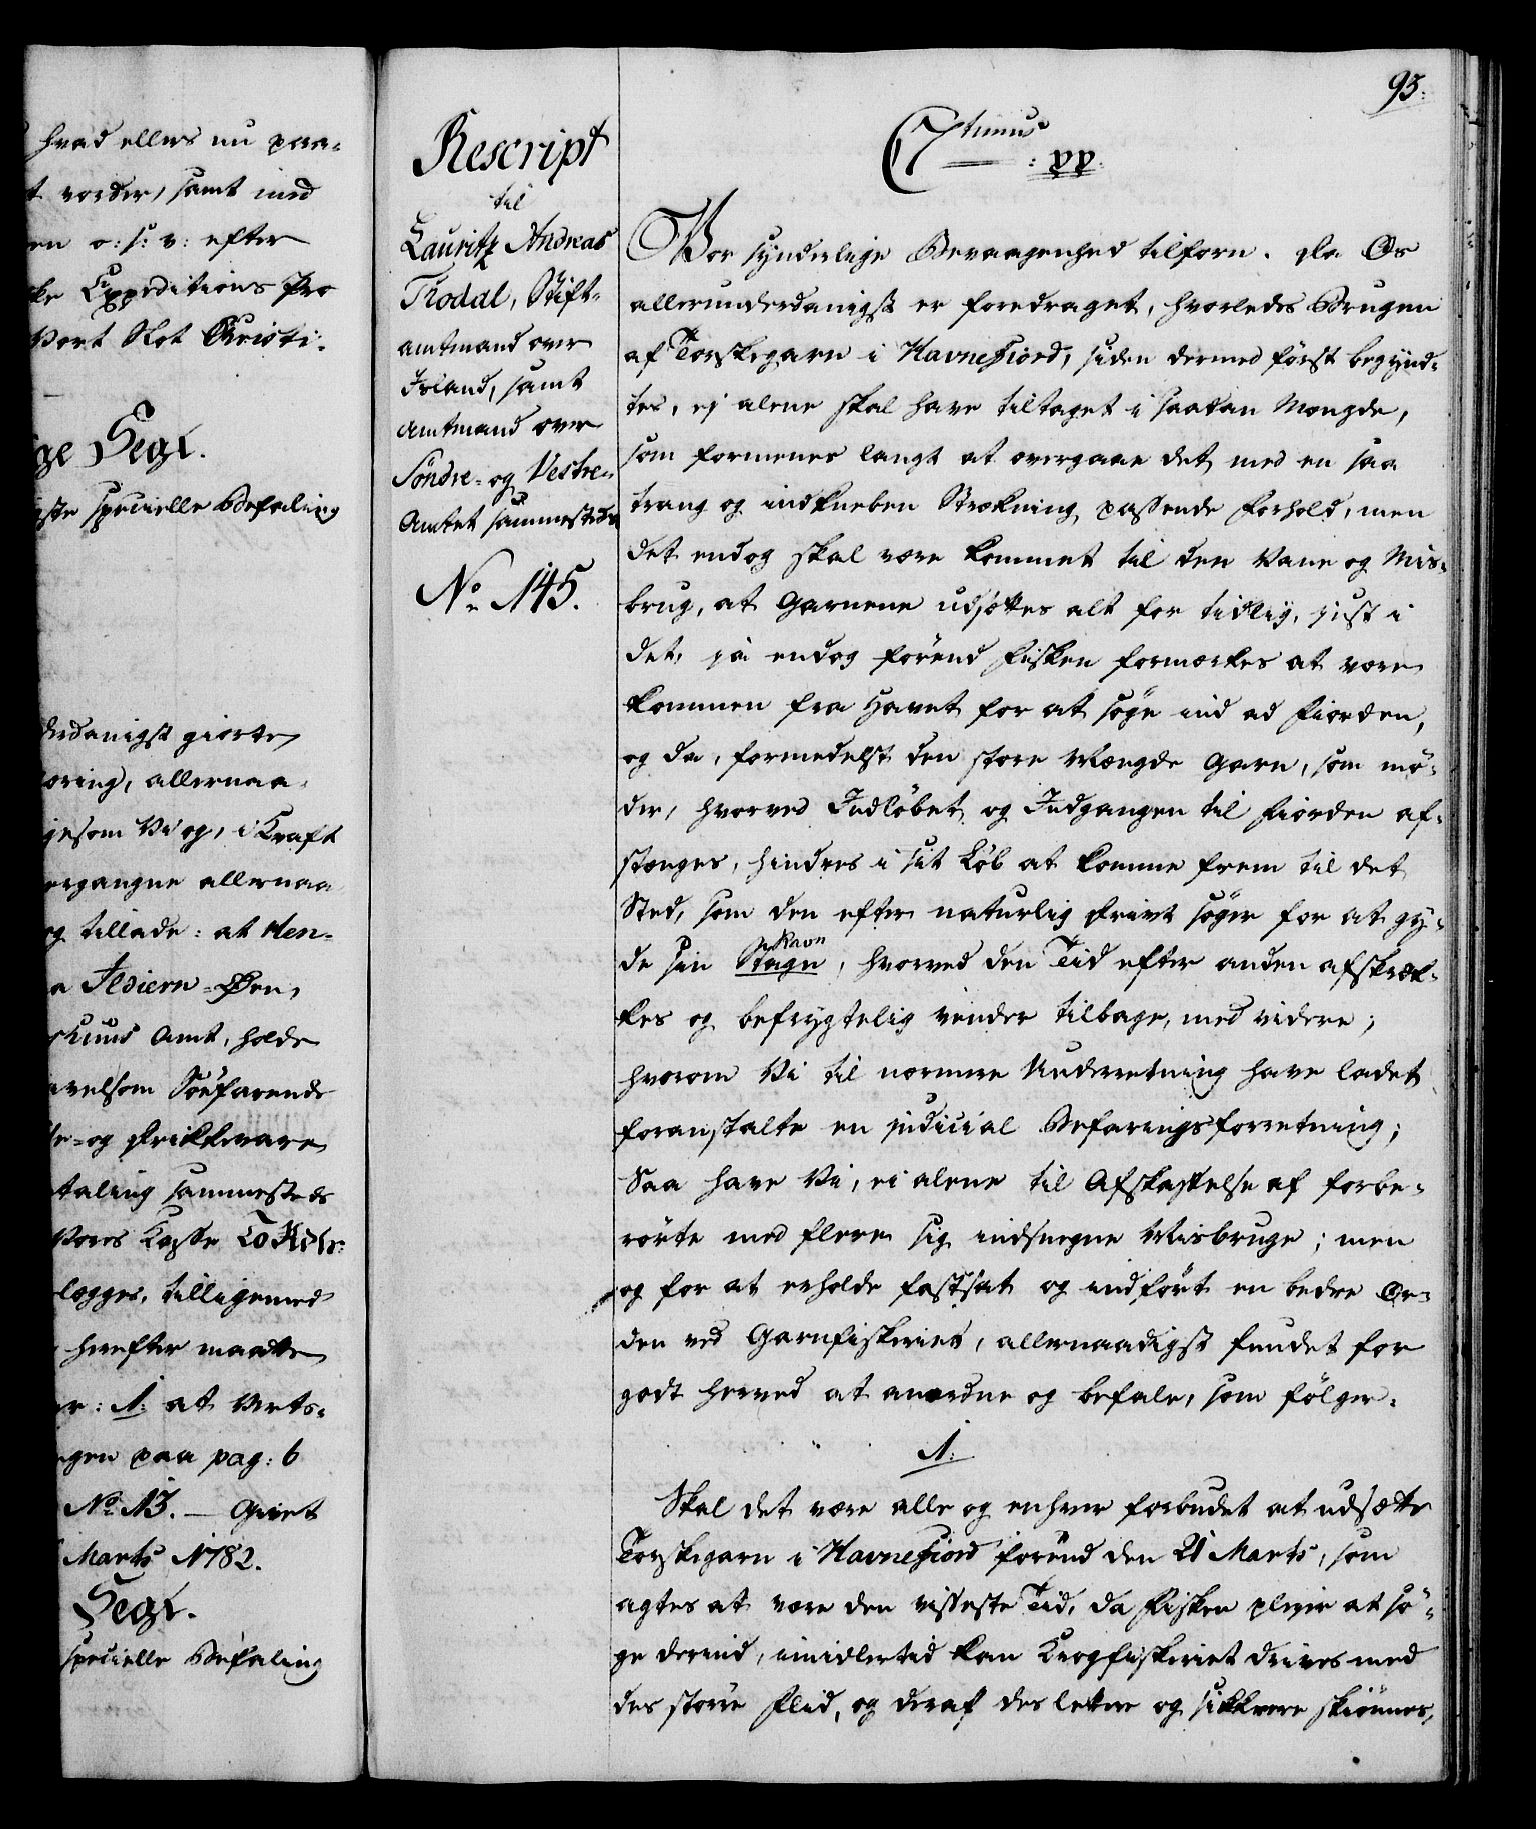 hvad ellers nu paa-
vorder, samt med
en o: s: v: efter
ke Expeditions Pro
Vort Slot Christi-
ge Segl.
gste specielle Befaling
derdanigst giorte
oring, allernaa-
gesom Vi og, i Kraft
ergangne allernaa
og tillade: at Hen-
huus Amt, holde
velsom Söefarende
e- og Drikkevare
taling sammesteds
Vores Kasse To Rdlr:
legges, tilligemed
herefter maatte
r: 1: at Arts-
gen paa pag: 6
No 13. — Givet
Marts 1782.
Segl.
specielle Befaling
93.
Rescript
til
Lauritz Andreas
Thodal, Stift-
amtmand over
Island, samt
Amtmand over
Söndre- og Vestre-
Amtet sammesteds
No 145.
C 7timus
: pp.
Vor synderlige Bevaagenhed tilforn. Da Os
allerunderdanigst er foredraget, hvorledes Brugen
af Torskegarn i Havnefiord, siden dermed först begynd-
tes, ej alene skal have tiltaget i saadan Mengde,
som formenes langt at overgaae det med en saa
trang og indkneben Strekning passende Forhold, men
det endog skal være kommet til den Vane og Mis-
brug, at Garnene udsættes alt for tidlig, just i
det, ja endog förend Fisken formærkes at være
kommen fra Havet for at söge ind ad Fiorden,
og da, formedelst den store Mængde Garn, som mö-
der, hvorved Indlöbet og Indgangen til Fiorden af-
stænges, hindres i sit Löb at komme frem til det
Sted, som den efter naturlig Drivt söger for at gy-
de sin Stagn, hvorved den Tid efter anden afskræk-
Ravn
kes og befrygtelig vender tilbage, med videre;
hvorom Vi til nærmere Underretning have ladet
foranstalte en judicial Befaringsforretning;
Saa have Vi, ei alene til Afskaffelse af forbe-
rörte med flere sig indsnegne Misbruge; men
og for at erholde fastsat og indfört en bedre Or-
den ved Garnfiskeriet, allernaadigst fundet for
godt herved at anordne og befale, som fölger.
1.
Skal det være alle og enhver forbudet at udsætte
Torskegarn i Havnefiord förend den 21 Marts, som
agtes at være den visseste Tid, da Fisken pleier at sö-
ge derind, imidlertid kan Krogfiskeriet drives med
des större Flid, og deraf des lettere og sikkrere skiönnes,